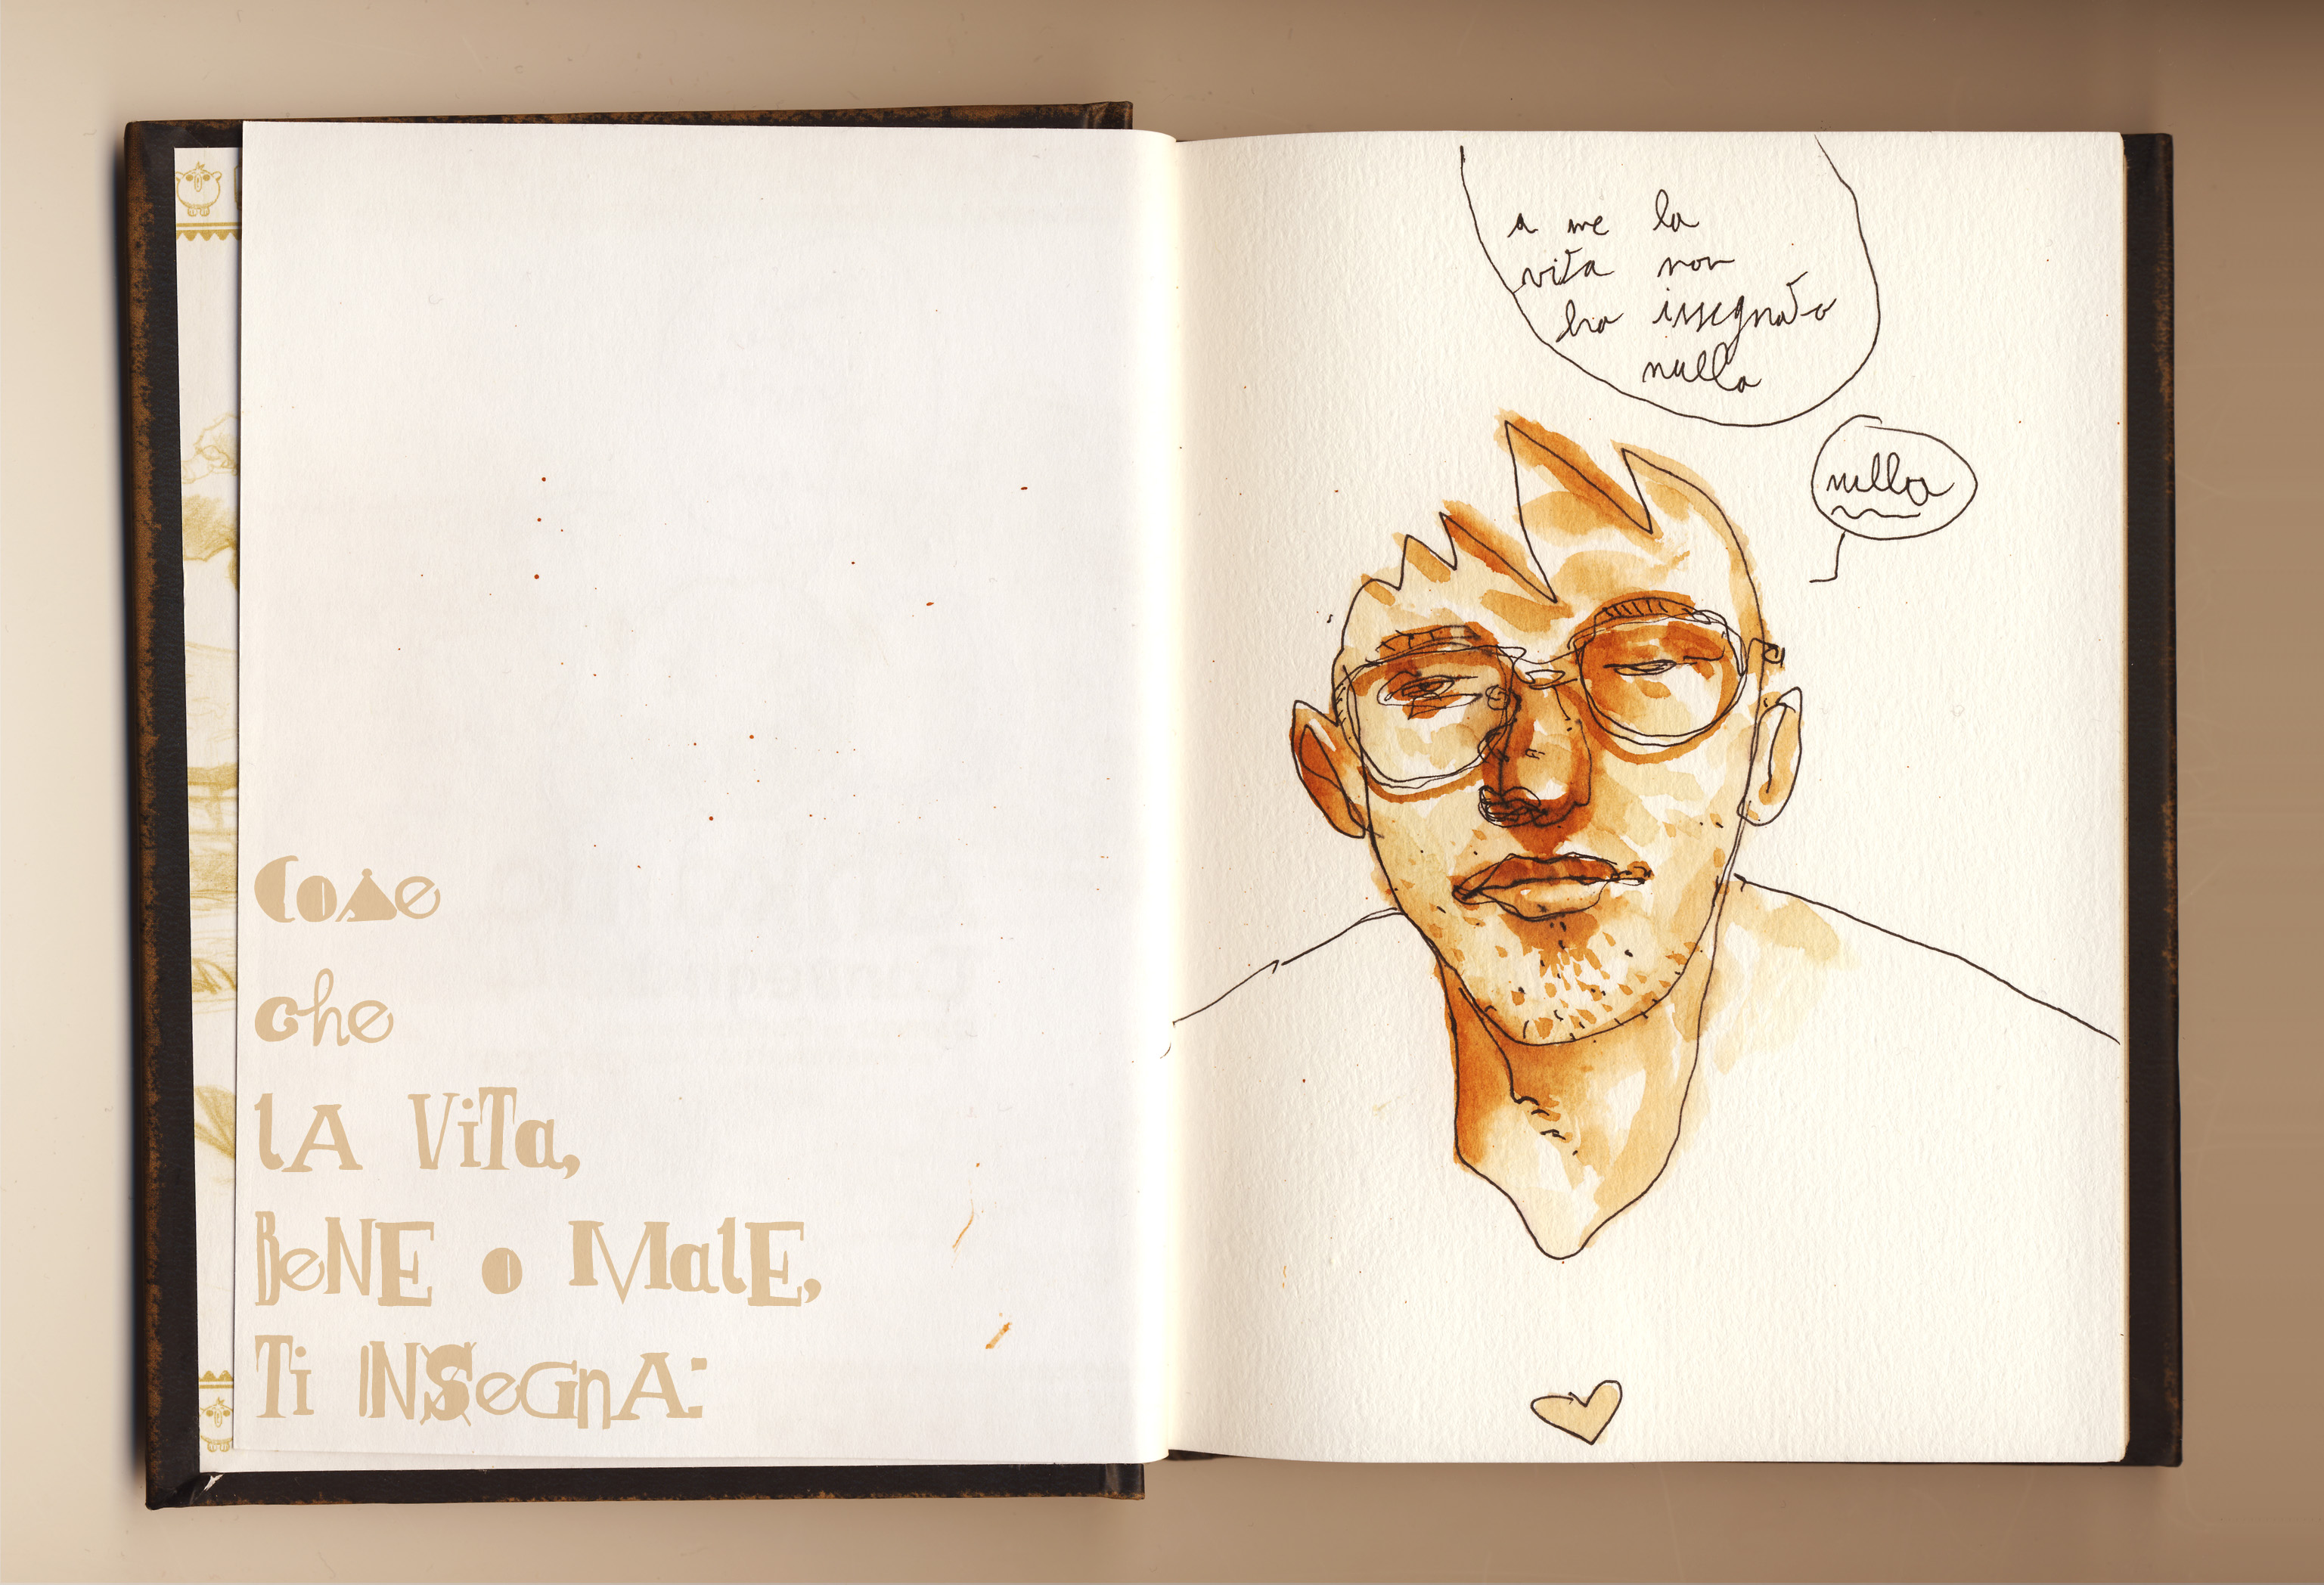 Cose
che
lA ViTa,
BeNE o MalE,
Ti INSeGnA:
a me la
vita non
ha insegnato
nulla
nulla